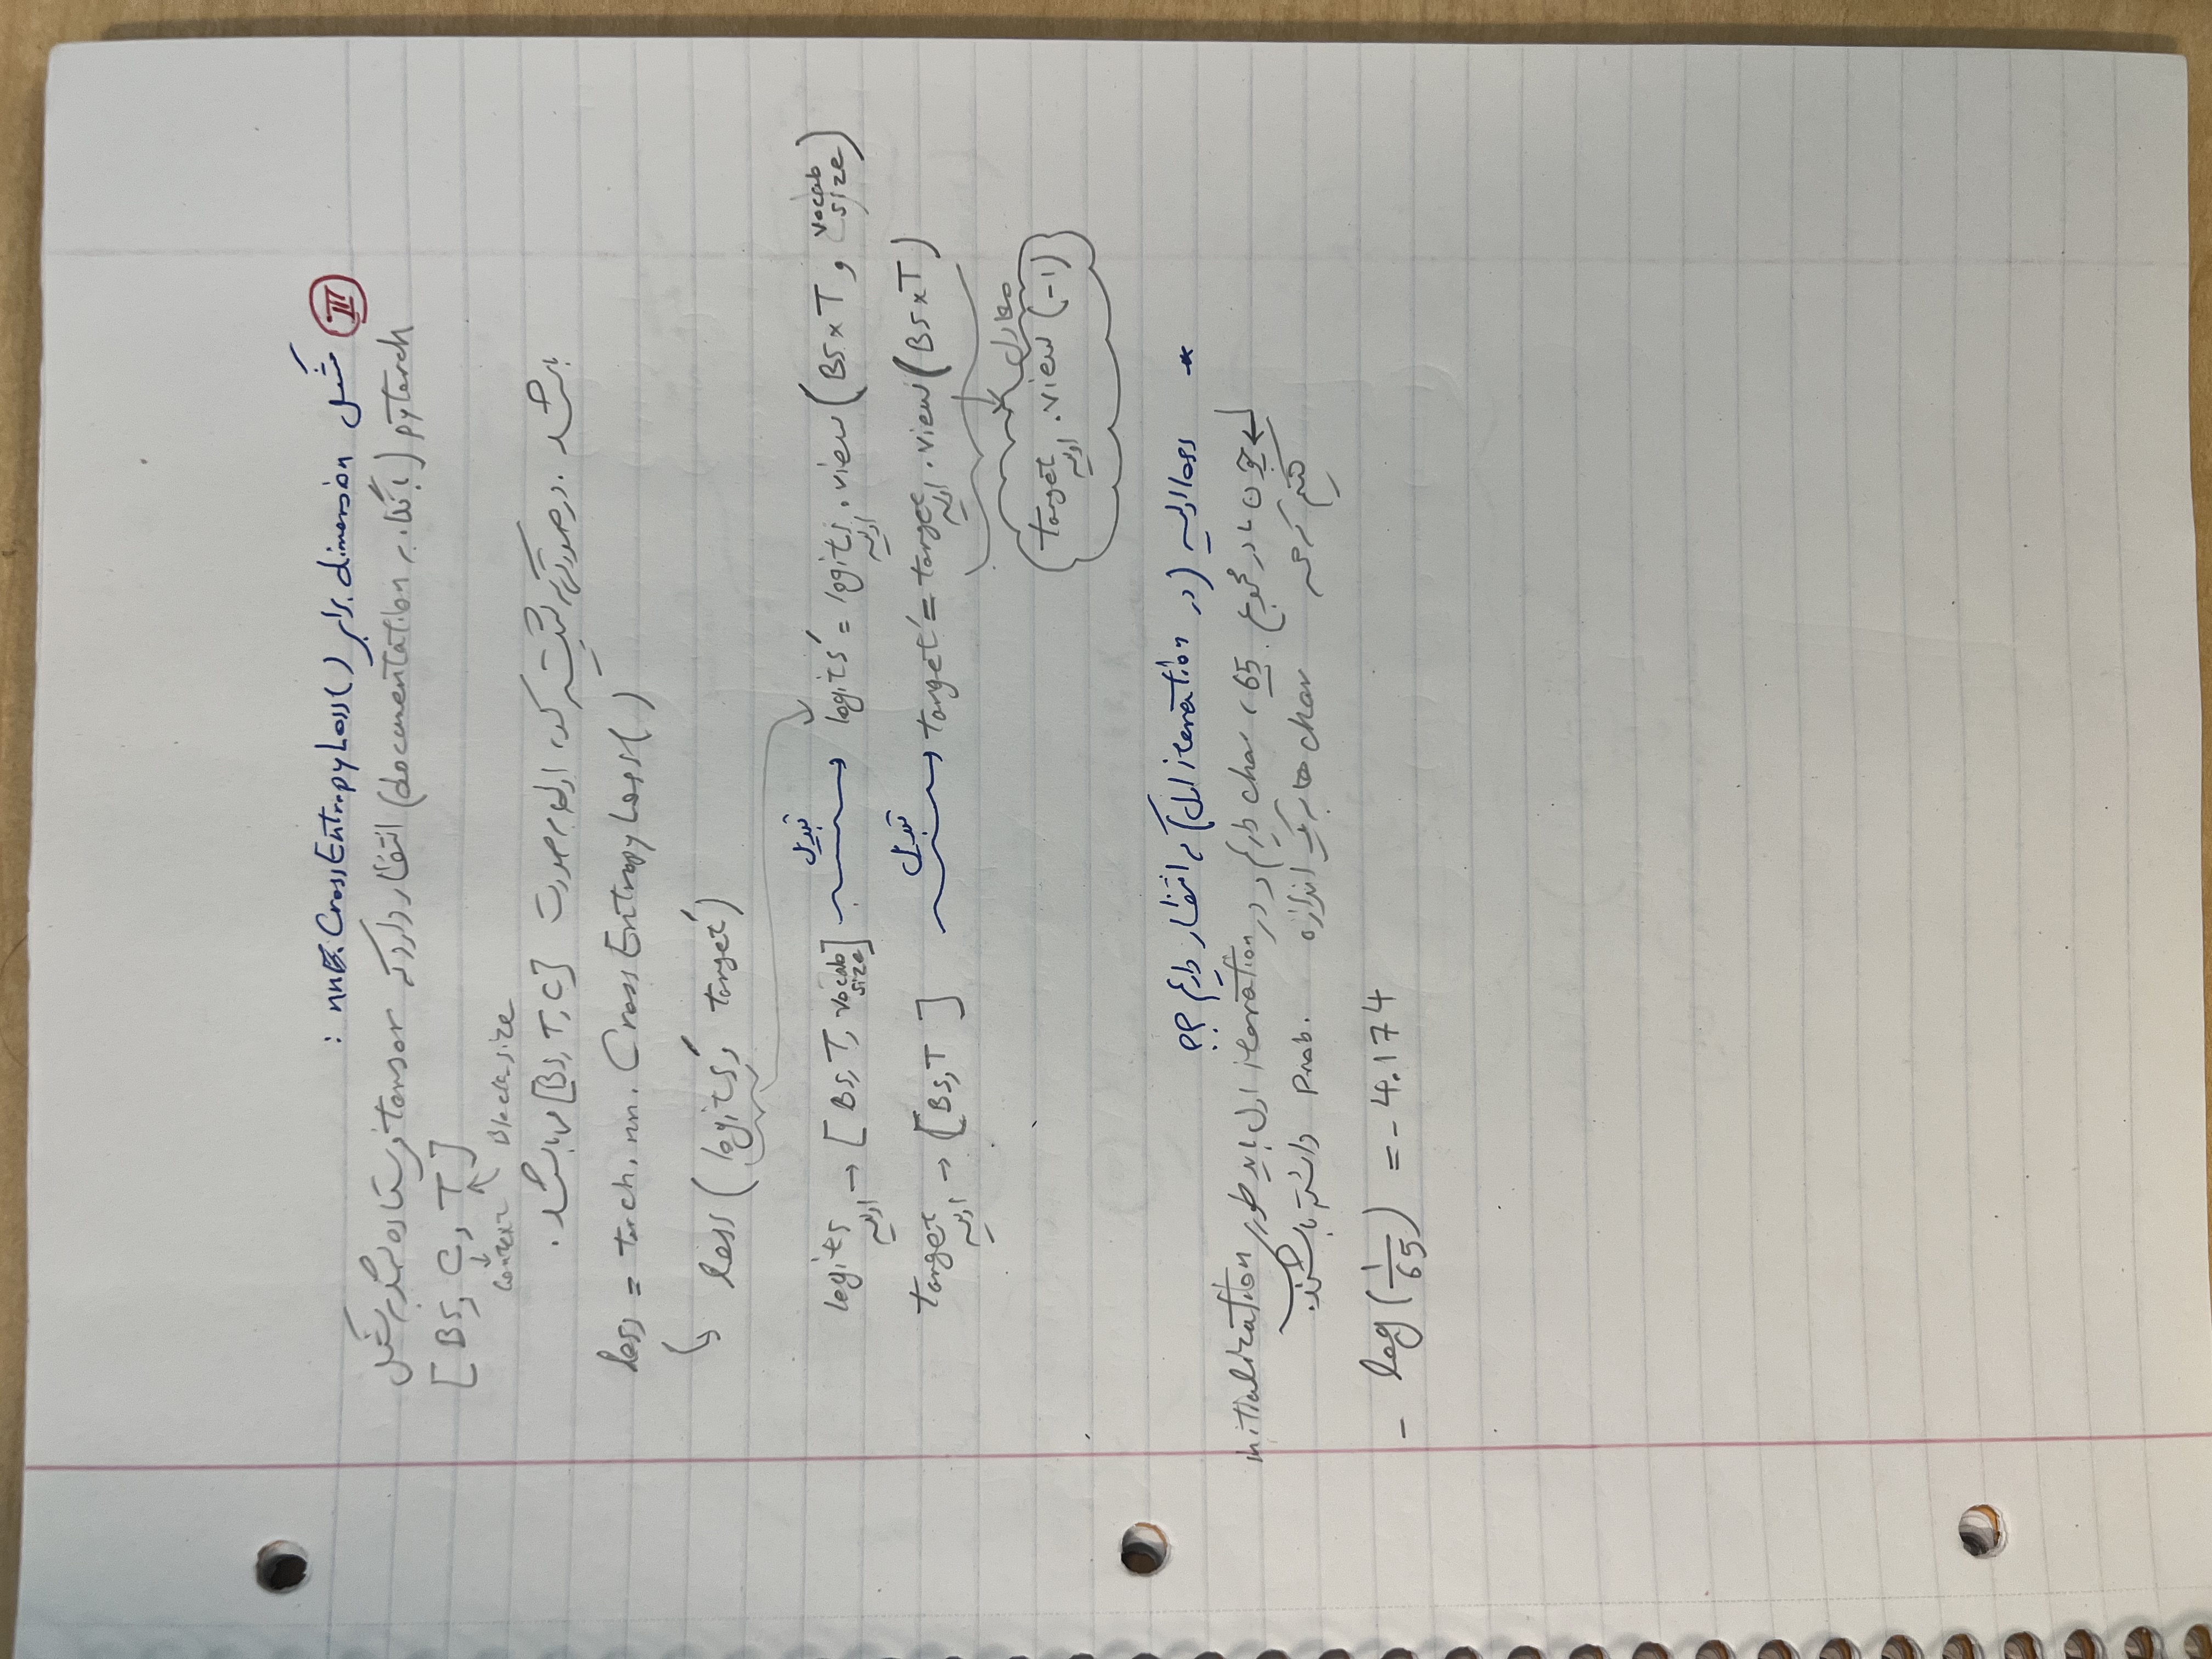 III مشکل dimension برابر nn.CrossEntropyLoss() :
pytorch (با نگاه به documentation) انتظار دارد که tensor فرستاده شده به شکل
[Bs, C, T]
context Block-size
باشد. در صورتی که اولیه به صورت [Bs, T, C] می باشد.
loss = torch.nn.CrossEntropyLoss()
loss(logits', target')
تبدیل
logits اولیه → [Bs, T, vocab size] → logits' = logits اولیه .view(Bs×T, vocab size)
تبدیل
target اولیه → [Bs, T] → target' = target اولیه .view(Bs×T)
معادل
target اولیه .view(-1)
* loss اولیه (در iteration اول) که انتظار داریم ؟؟
چون ما در مجموع 65، char داریم و در iteration اول باید طوری initialization
کنیم که همه char ها به یک اندازه prob. داشته باشند.
- log(1/65) = -4.174